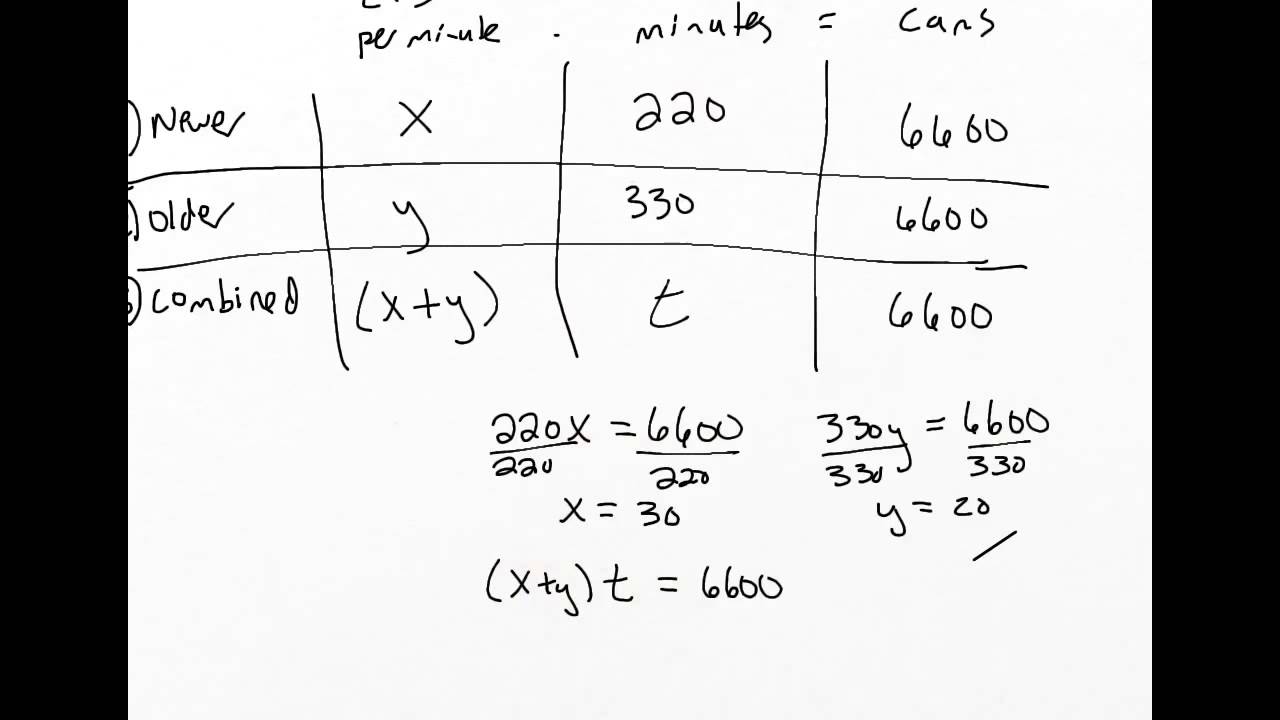 per minute . minutes = cans
1) Newer x 220 6600
2) older y 330 6600
3) combined (x+y) t 6600
220x = 6600 330y = 6600
220 220 330 330
x = 30 y = 20
(x+y) t = 6600